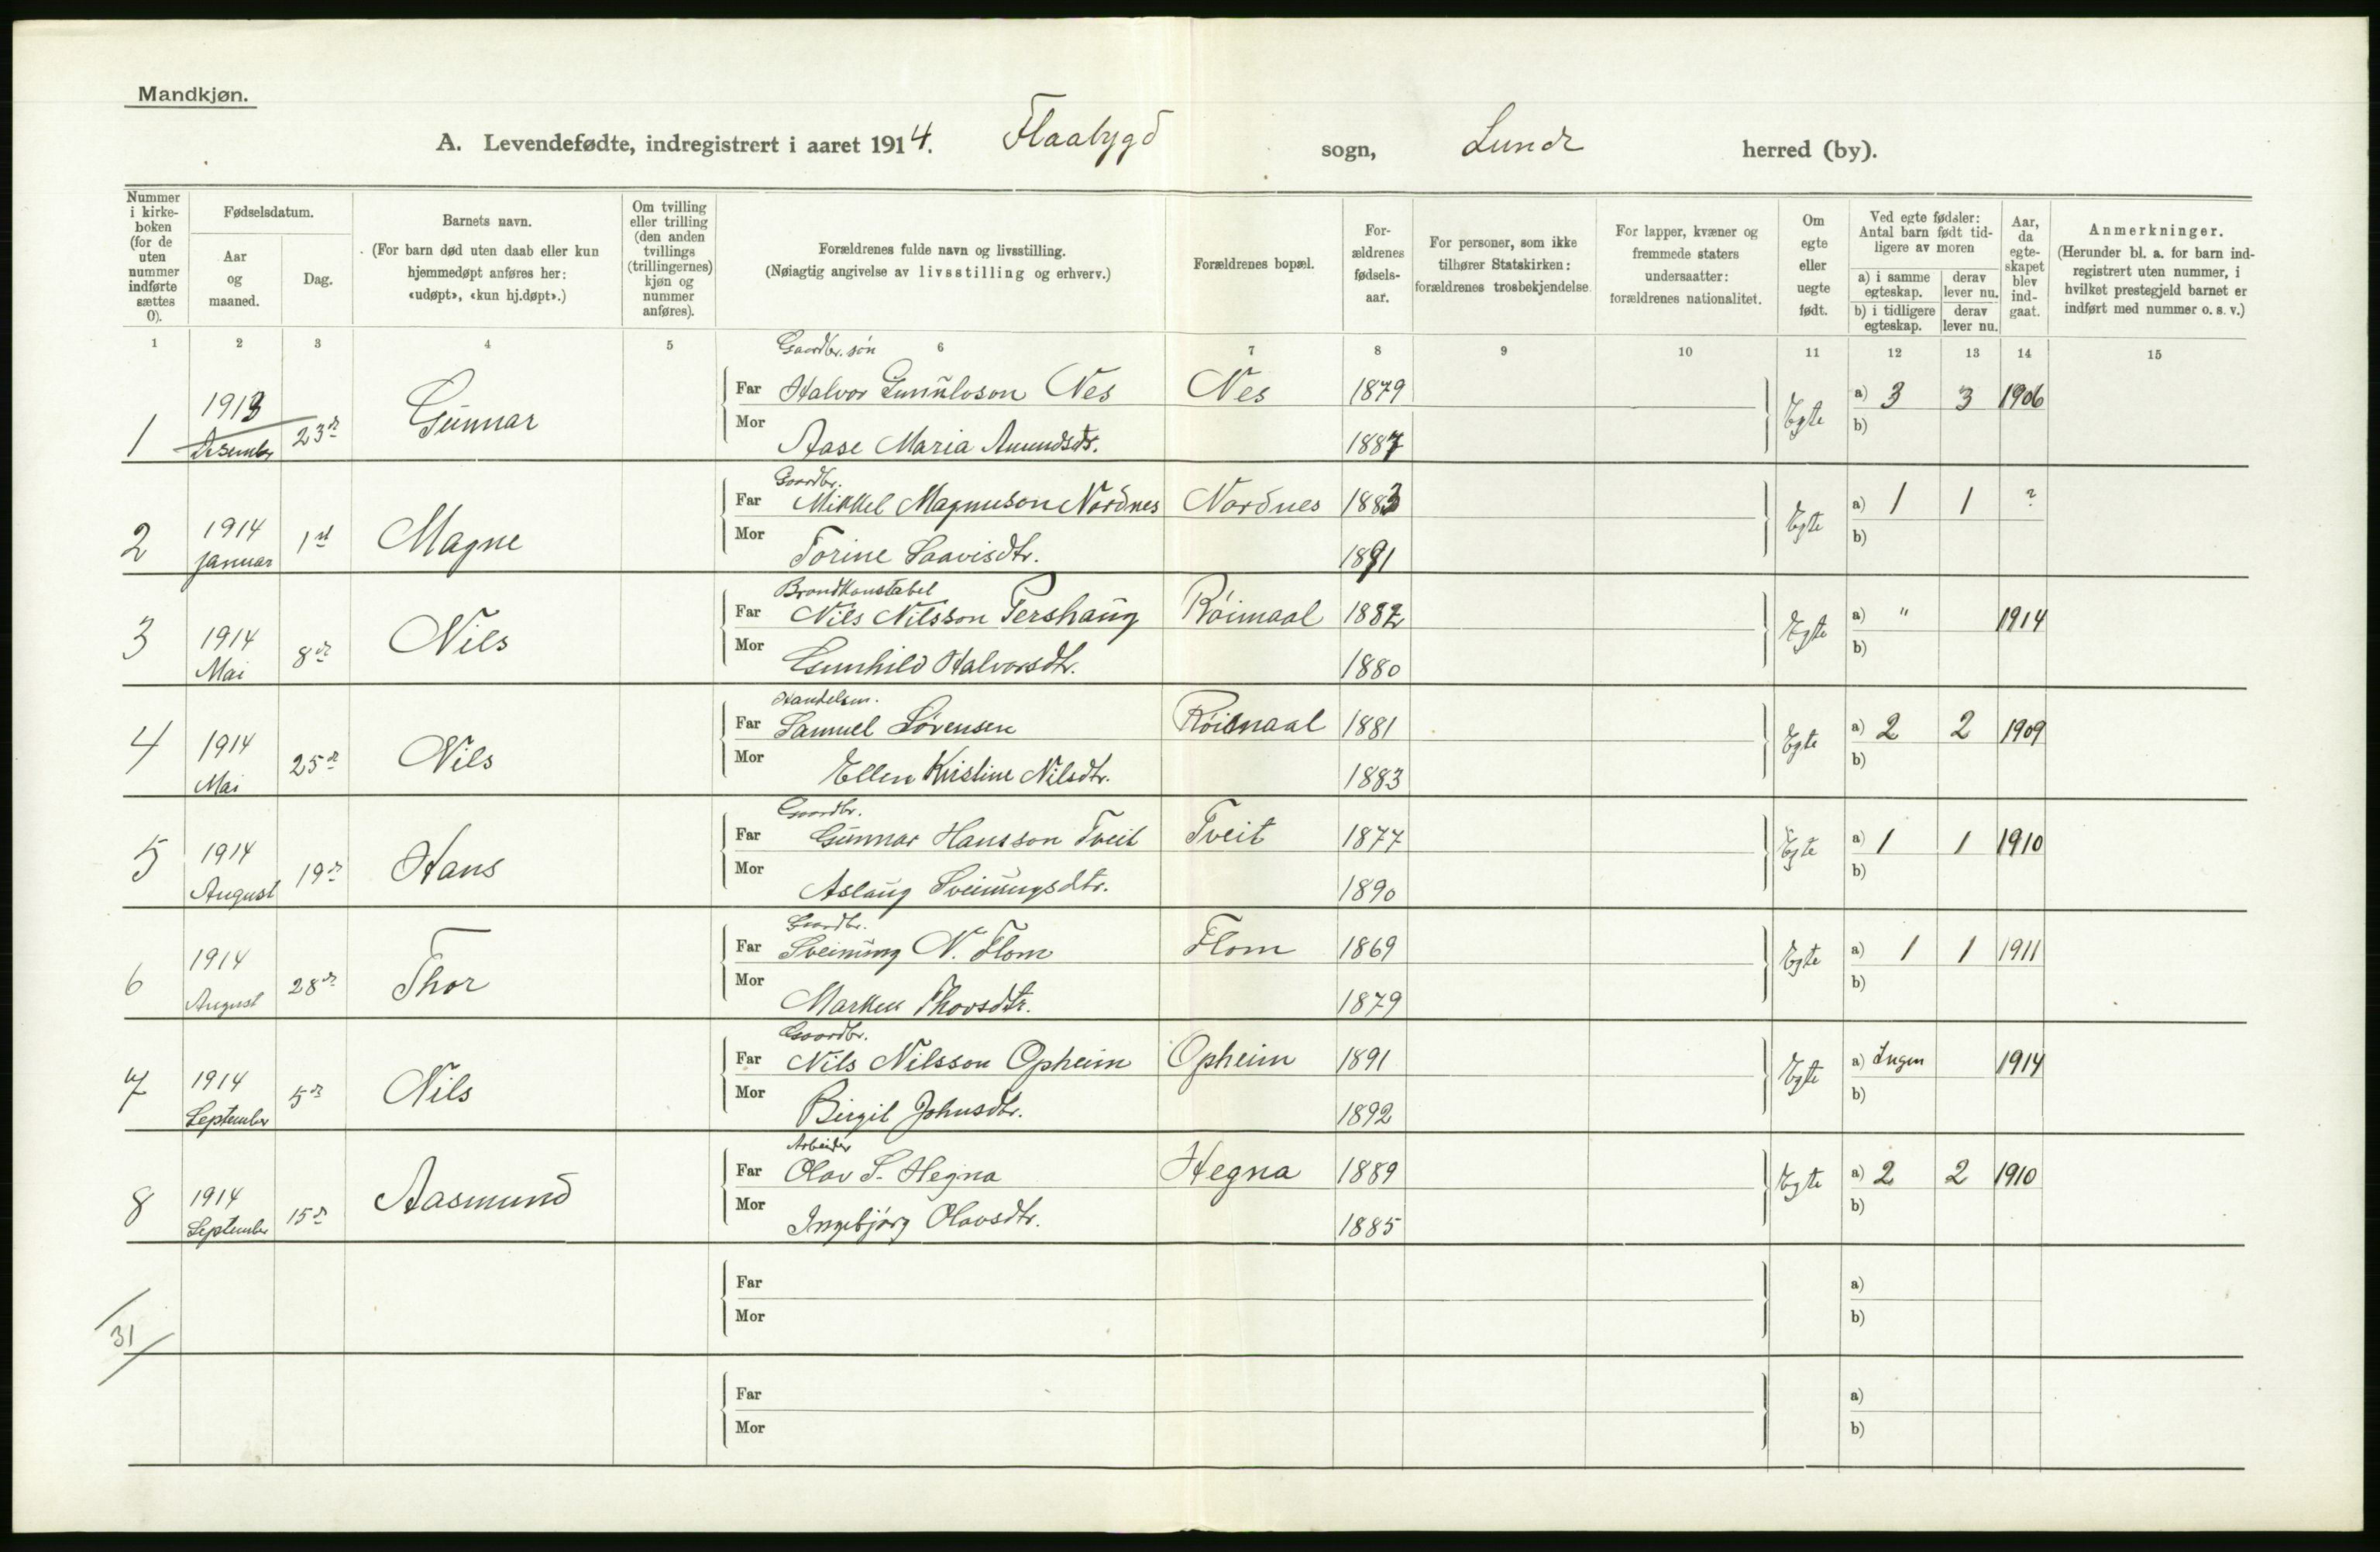 Mandkjøn.
A. Levendefødte, indregistrert i aaret 1914. Flaabygd sogn, Lunde herred (by).
Nummer i kirke-boken (for de uten nummer indførte sættes 0).
Fødselsdatum.
Aar og maaned.
Dag.
Barnets navn.
(For barn død uten daab eller kun hjemmedøpt anføres her: «udøpt», «kun hj.døpt».)
Om tvilling eller trilling (den anden tvillings (trillingernes) kjøn og nummer anføres).
Forældrenes fulde navn og livsstilling.
(Nøiagtig angivelse av livsstilling og erhverv.)
Forældrenes bopæl.
For-ældrenes fødsels-aar.
For personer, som ikke tilhører Statskirken: forældrenes trosbekjendelse.
For lapper, kvæner og fremmede staters undersaatter: forældrenes nationalitet.
Om egte eller uegte født.
Ved egte fødsler: Antal barn født tid-ligere av moren
a) i samme egteskap. derav lever nu.
b) i tidligere egteskap. derav lever nu.
Aar, da egte-skapet blev ind-gaat.
Anmerkninger.
(Herunder bl. a. for barn ind-registrert uten nummer, i hvilket prestegjeld barnet er indført med nummer o. s. v.)
1 2 3 4 5 6 7 8 9 10 11 12 13 14 15
Gaardbr. søn
1 1913 Desember 23de Gunnar Far Halvor Gunnulvson Nes Nes 1879 Egte a) 3 3 1906
Mor Aase Maria Amundsdtr. 1887 b)
Gaardbr.
2 1914 Januar 1st Magne Far Mikkel Magnuson Nordnes Nordnes 1883 Egte a) 1 1 ?
Mor Torine Saavisdtr. 1891 b)
Brandkonstabel
3 1914 Mai 8de Nils Far Nils Nilsson Pershaug Røimaal 1882 Egte a) " 1914
Mor Gunhild Halvorsdtr. 1880 b)
Handelsm.
4 1914 Mai 25de Nils Far Samuel Sørensen Røimaal 1881 Egte a) 2 2 1909
Mor Ellen Kristine Nilsdtr. 1883 b)
Gaardbr.
5 1914 August 19de Hans Far Gunnar Hansson Tveit Tveit 1877 Egte a) 1 1 1910
Mor Aslaug Sveinungsdtr. 1890 b)
Gaardbr.
6 1914 August 28de Thor Far Sveinung N. Flom Flom 1869 Egte a) 1 1 1911
Mor Marken Thorsdtr. 1879 b)
Gaardbr.
7 1914 September 5de Nils Far Nils Nilsson Opheim Opheim 1891 Egte a) Ingen 1914
Mor Birgit Johnsdtr. 1892 b)
Arbeider
8 1914 September 15de Aasmund Far Olav S. Hegna Hegna 1889 Egte a) 2 2 1910
Mor Ingebjørg Olavsdtr. 1885 b)
Far a)
31 Mor b)
Far a)
Mor b)